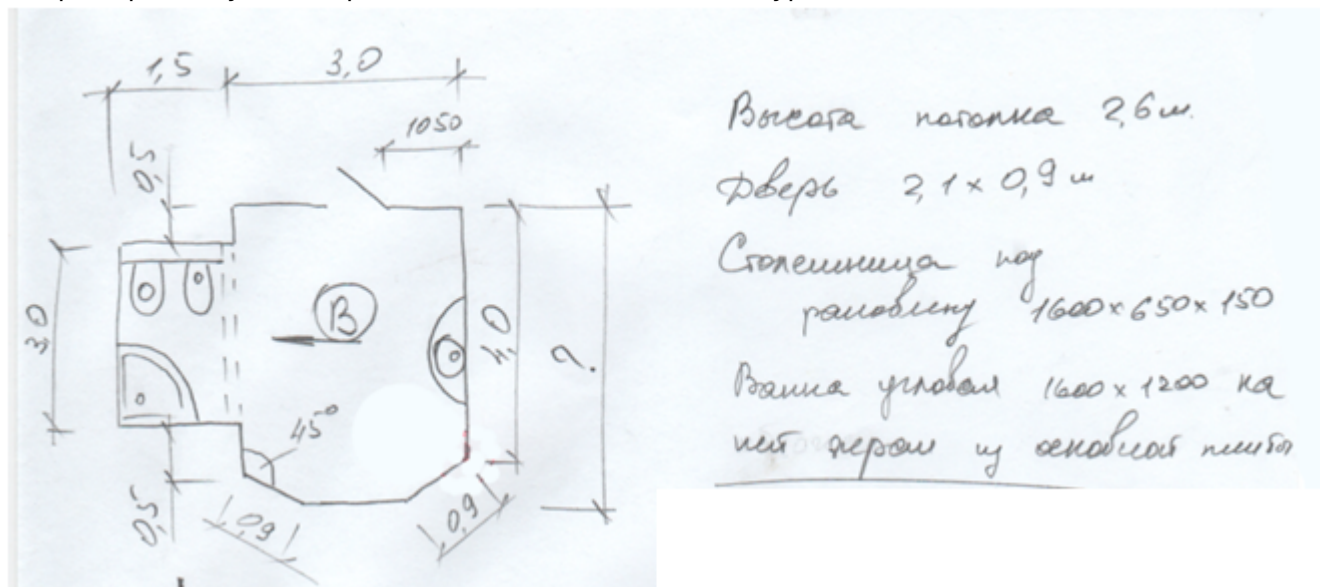 1,5
3,0
1050
0,5
3,0
В
4,0
?
45°
0,5
0,9
0,9
Высота потолка 2,6 м.
Дверь 2,1 x 0,9 м
Столешница под
раковину 1600 x 650 x 150
Ванна угловая 1600 x 1200 на
нет экран из основной плиты